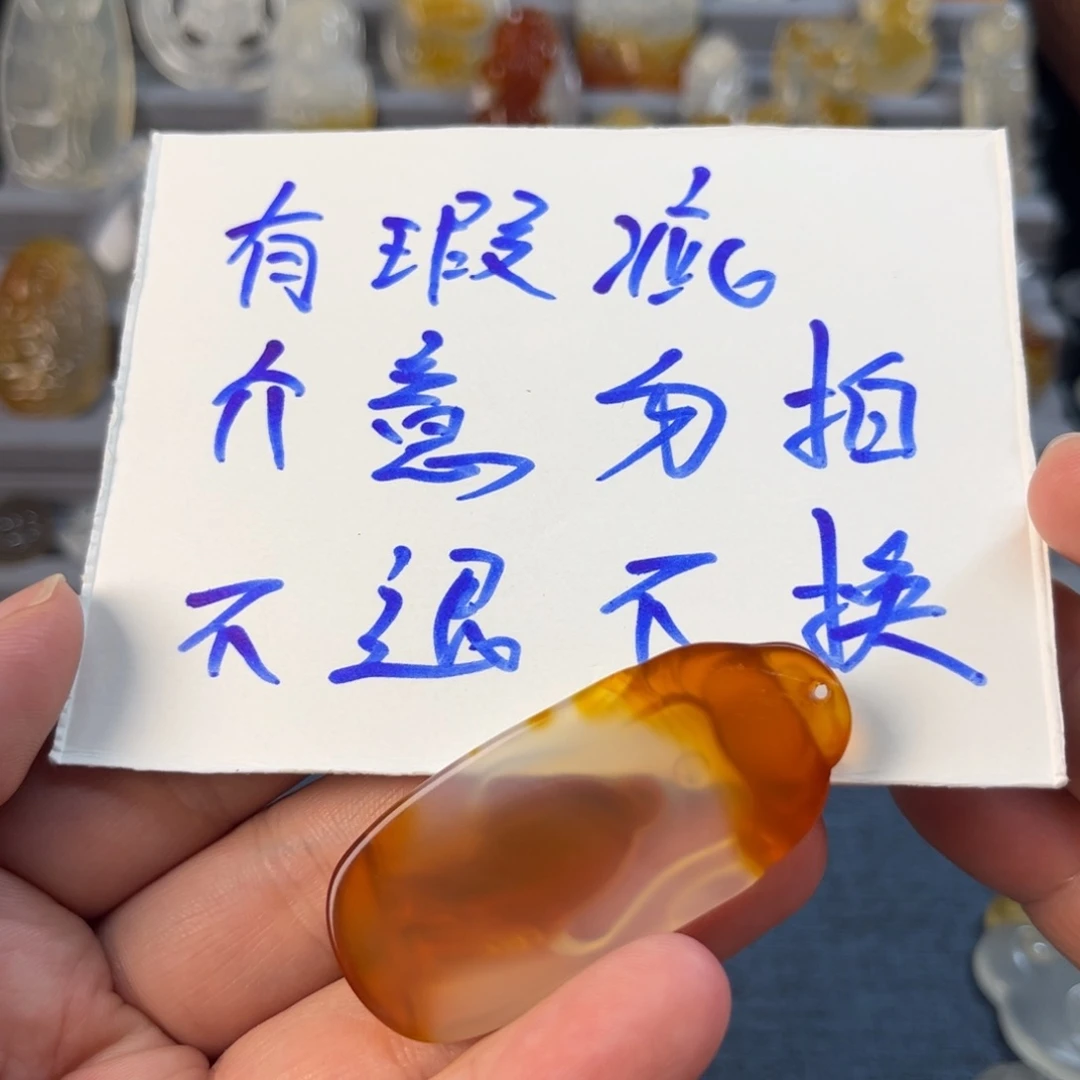 有瑕疵
介意勿拍
不退不换